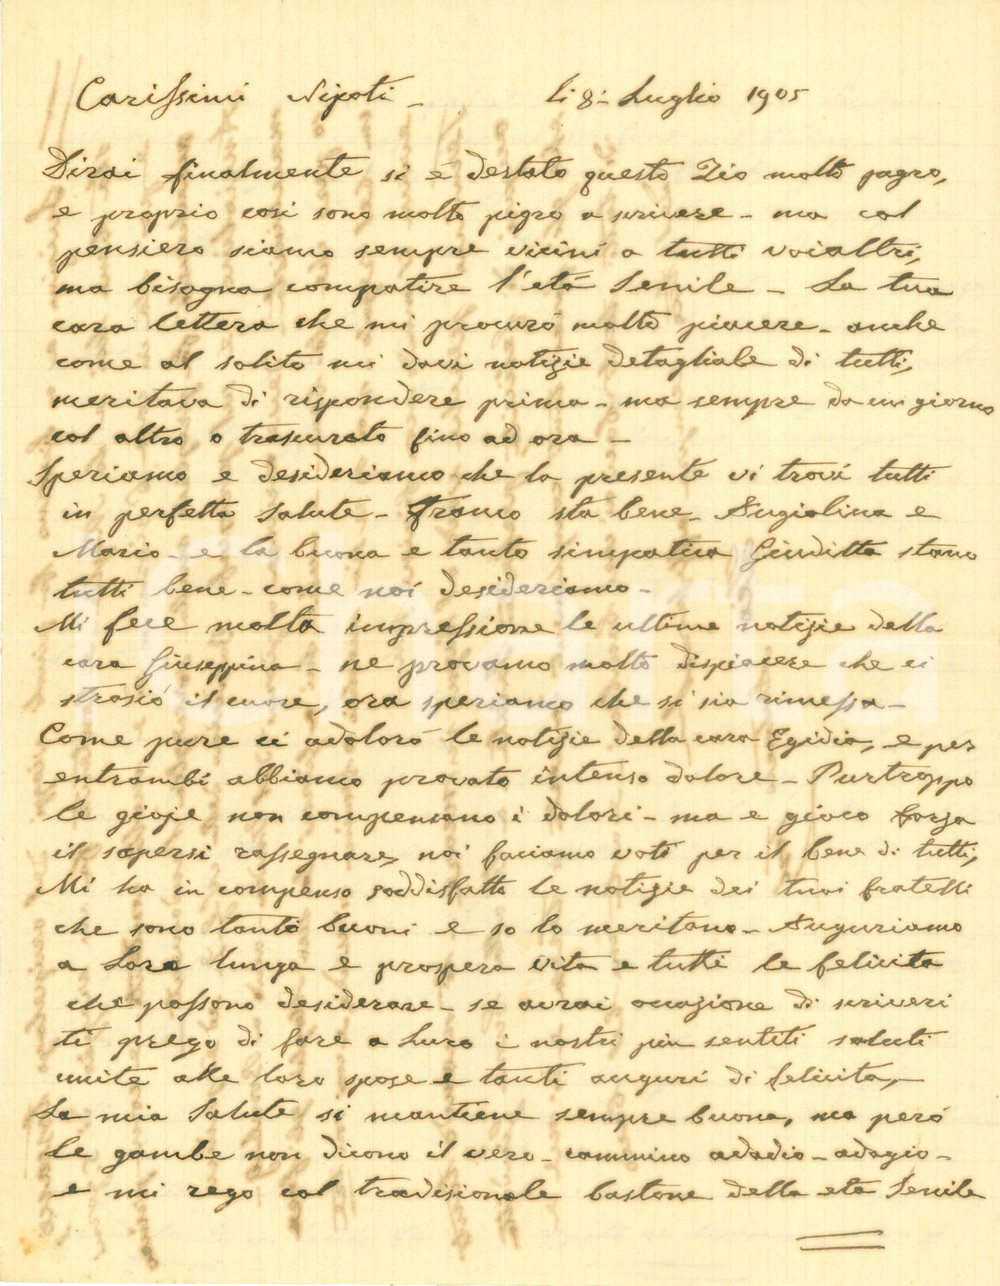 Carissimi Nipoti - li 8- Luglio 1905
Dirai finalmente si è destato questo Zio molto pagro,
e proprio così sono molto pigro a scrivere - ma col
pensiero siamo sempre vicini a tutti voialtri,
ma bisogna compatire l'età Senile - La tua
cara lettera che mi procurò molto piacere - anche
come al solito mi davi notizie detagliale di tutti,
meritava di rispondere prima - ma sempre da un giorno
col altro o trascurato fino ad ora -
Speriamo e desideriamo che la presente vi trovi tutti
in perfetta Salute - Framo sta bene - Angiolina e
Mario - e la buona e tanto simpatica Giuditta stano
tutti bene - come noi desideriamo -
Mi fece molta impressione le ultime notizie della
cara Giuseppina - ne provamo molto dispiacere che ci
strasiò il cuore, ora speriamo che si sia rimessa -
Come pure ci adolorò le notizie della cara Egidia, e per
entrambi abbiamo provato intenso dolore - Purtroppo
le gioje non compensano i dolori - ma e gioco forza
il sapersi rassegnare, noi faciamo voti per il bene di tutti,
Mi ha in compenso soddisfatto le notizie dei tuoi fratelli
che sono tanto buoni e so lo meritano - Auguriamo
a Loro lunga e prospera vita e tutti le felicita
che possono desiderare - se avrai occazione di scriveri
ti prego di fare a Luro i nostri piu sentiti saluti
unite alle loro spose e tanti auguri di felicita, -
La mia Salute si mantiene sempre buona, ma però
le gambe non dicono il vero - cammino adadio - adagio -
e mi rego col tradisionale bastone della età Senile